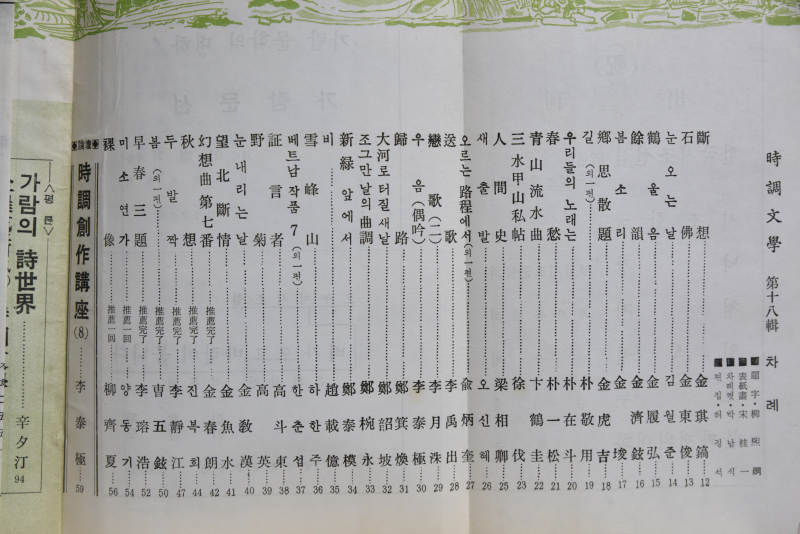 時調文學 第十八輯 차례
題字·柳熙綱
表紙畵·宋桂一
차례컷·박남식
편집·허정석
斷想 金琪鎬 12
石佛 金東俊 13
눈오는날 김월준 14
鶴울음 金履弘 15
餘韻 金濟鉉 16
봄소리 金埈 17
鄕思散題 金虎吉 18
길(외一편) 朴敬用 19
우리들의 노래는 朴在斗 20
春愁 朴一松 21
靑山流水曲 卞鶴圭 22
三水甲山私帖 徐伐 23
人間史 梁相卿 25
새출발 오신혜 26
오르는 路程에서(외一편) 兪炳奎 27
送歌 李禹出 28
戀歌(二) 李月洙 29
우음(偶吟) 李泰極 30
歸路 鄭箕煥 31
大河로 터질 새날 鄭韶坡 32
조그만 날의 曲調 鄭椀永 33
新綠 앞에서 鄭泰模 34
비 趙載億 35
雪峰山 하한주 36
베트남 작품 7 (외一편) 한춘섭 37
証言者 高斗東 38
野菊 高英 39
눈 내리는 날 金敎漢 40
望北斷情 金魚水 41
幻想曲第七番 推薦完了 金春朗 42
秋想 推薦完了 진복희 44
두발짝 推薦完了 李靜江 47
봄(외一편) 推薦完了 曺五鉉 50
早春三題 推薦完了 李瑢浩 52
미소연가 推薦一回 양동기 54
裸像 推薦一回 柳齊夏 56
論壇
時調創作講座(8) 李泰極 59
<평론>
가람의 詩世界 辛夕汀 94